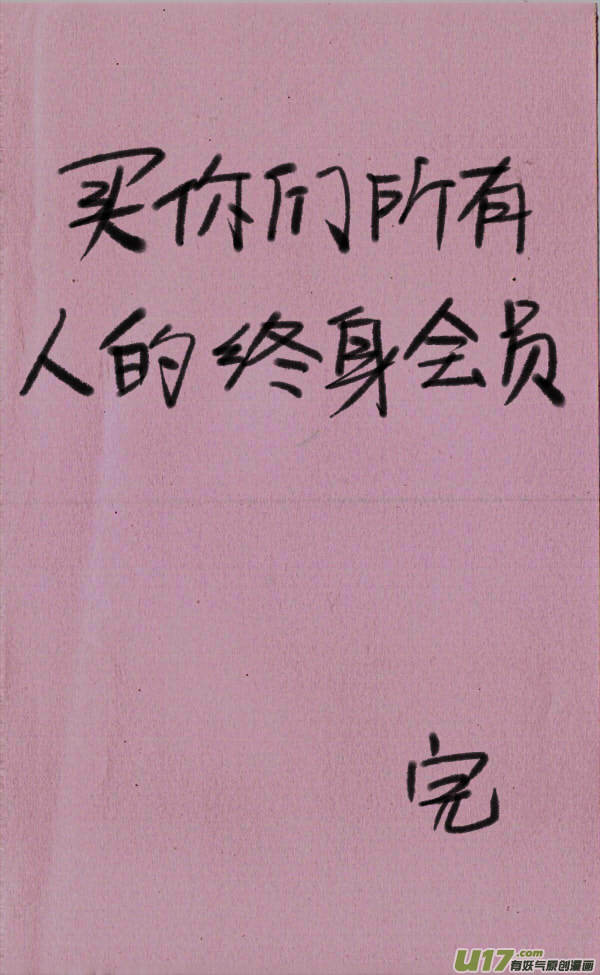 买你们所有
人的终身会员
完
U17.com
有妖气原创漫画